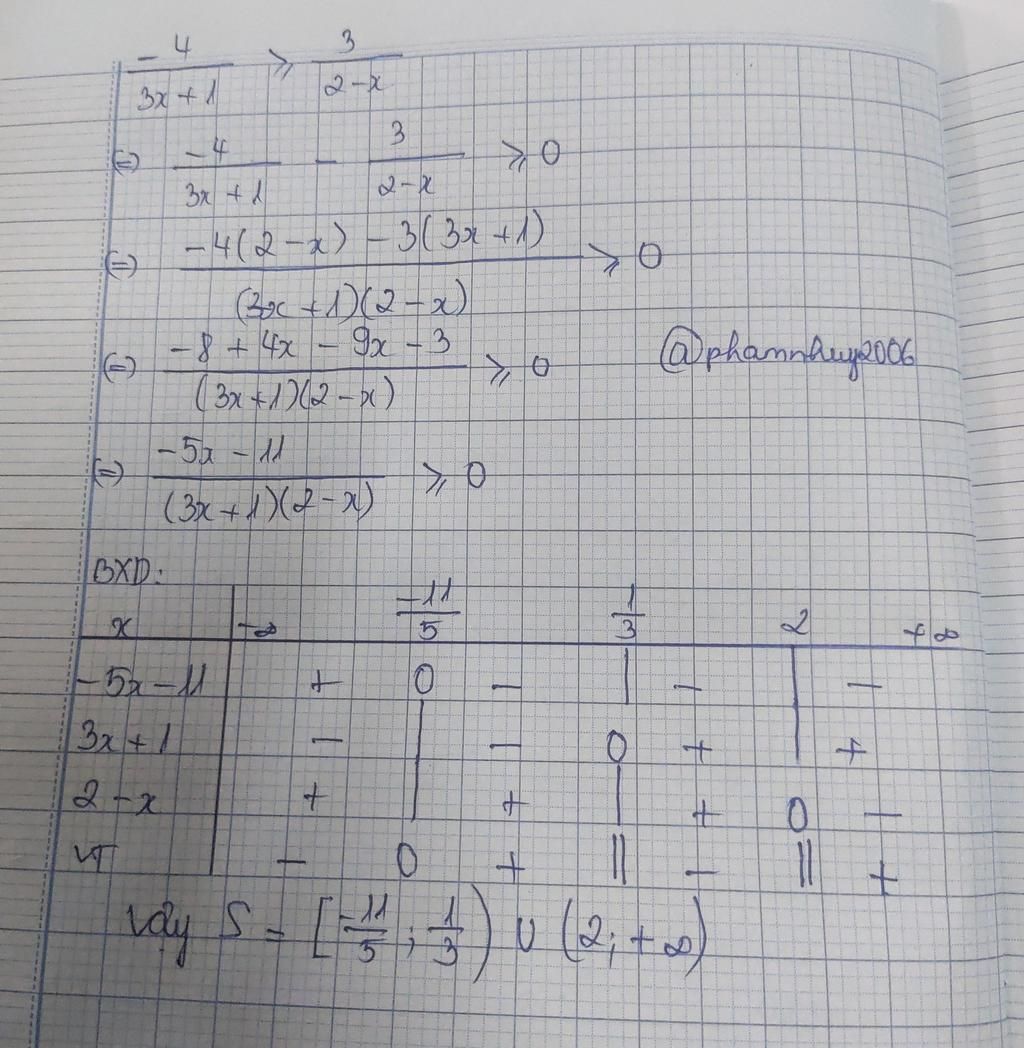 -4/(3x+1) ⩾ 3/(2-x)
(=) -4/(3x+1) - 3/(2-x) ⩾ 0
(=) (-4(2-x) - 3(3x+1))/((3x+1)(2-x)) ⩾ 0
(=) (-8 + 4x - 9x - 3)/((3x+1)(2-x)) ⩾ 0 @phamnhuy2006
(=) (-5x - 11)/((3x+1)(2-x)) ⩾ 0
BXD:
x -∞ -11/5 1/3 2 +∞
-5x-11 + 0 - | - | -
3x+1 - | - 0 + | +
2-x + | + | + 0 -
VT - 0 + || - || +
Vậy S = [-11/5; 1/3) ∪ (2; +∞)